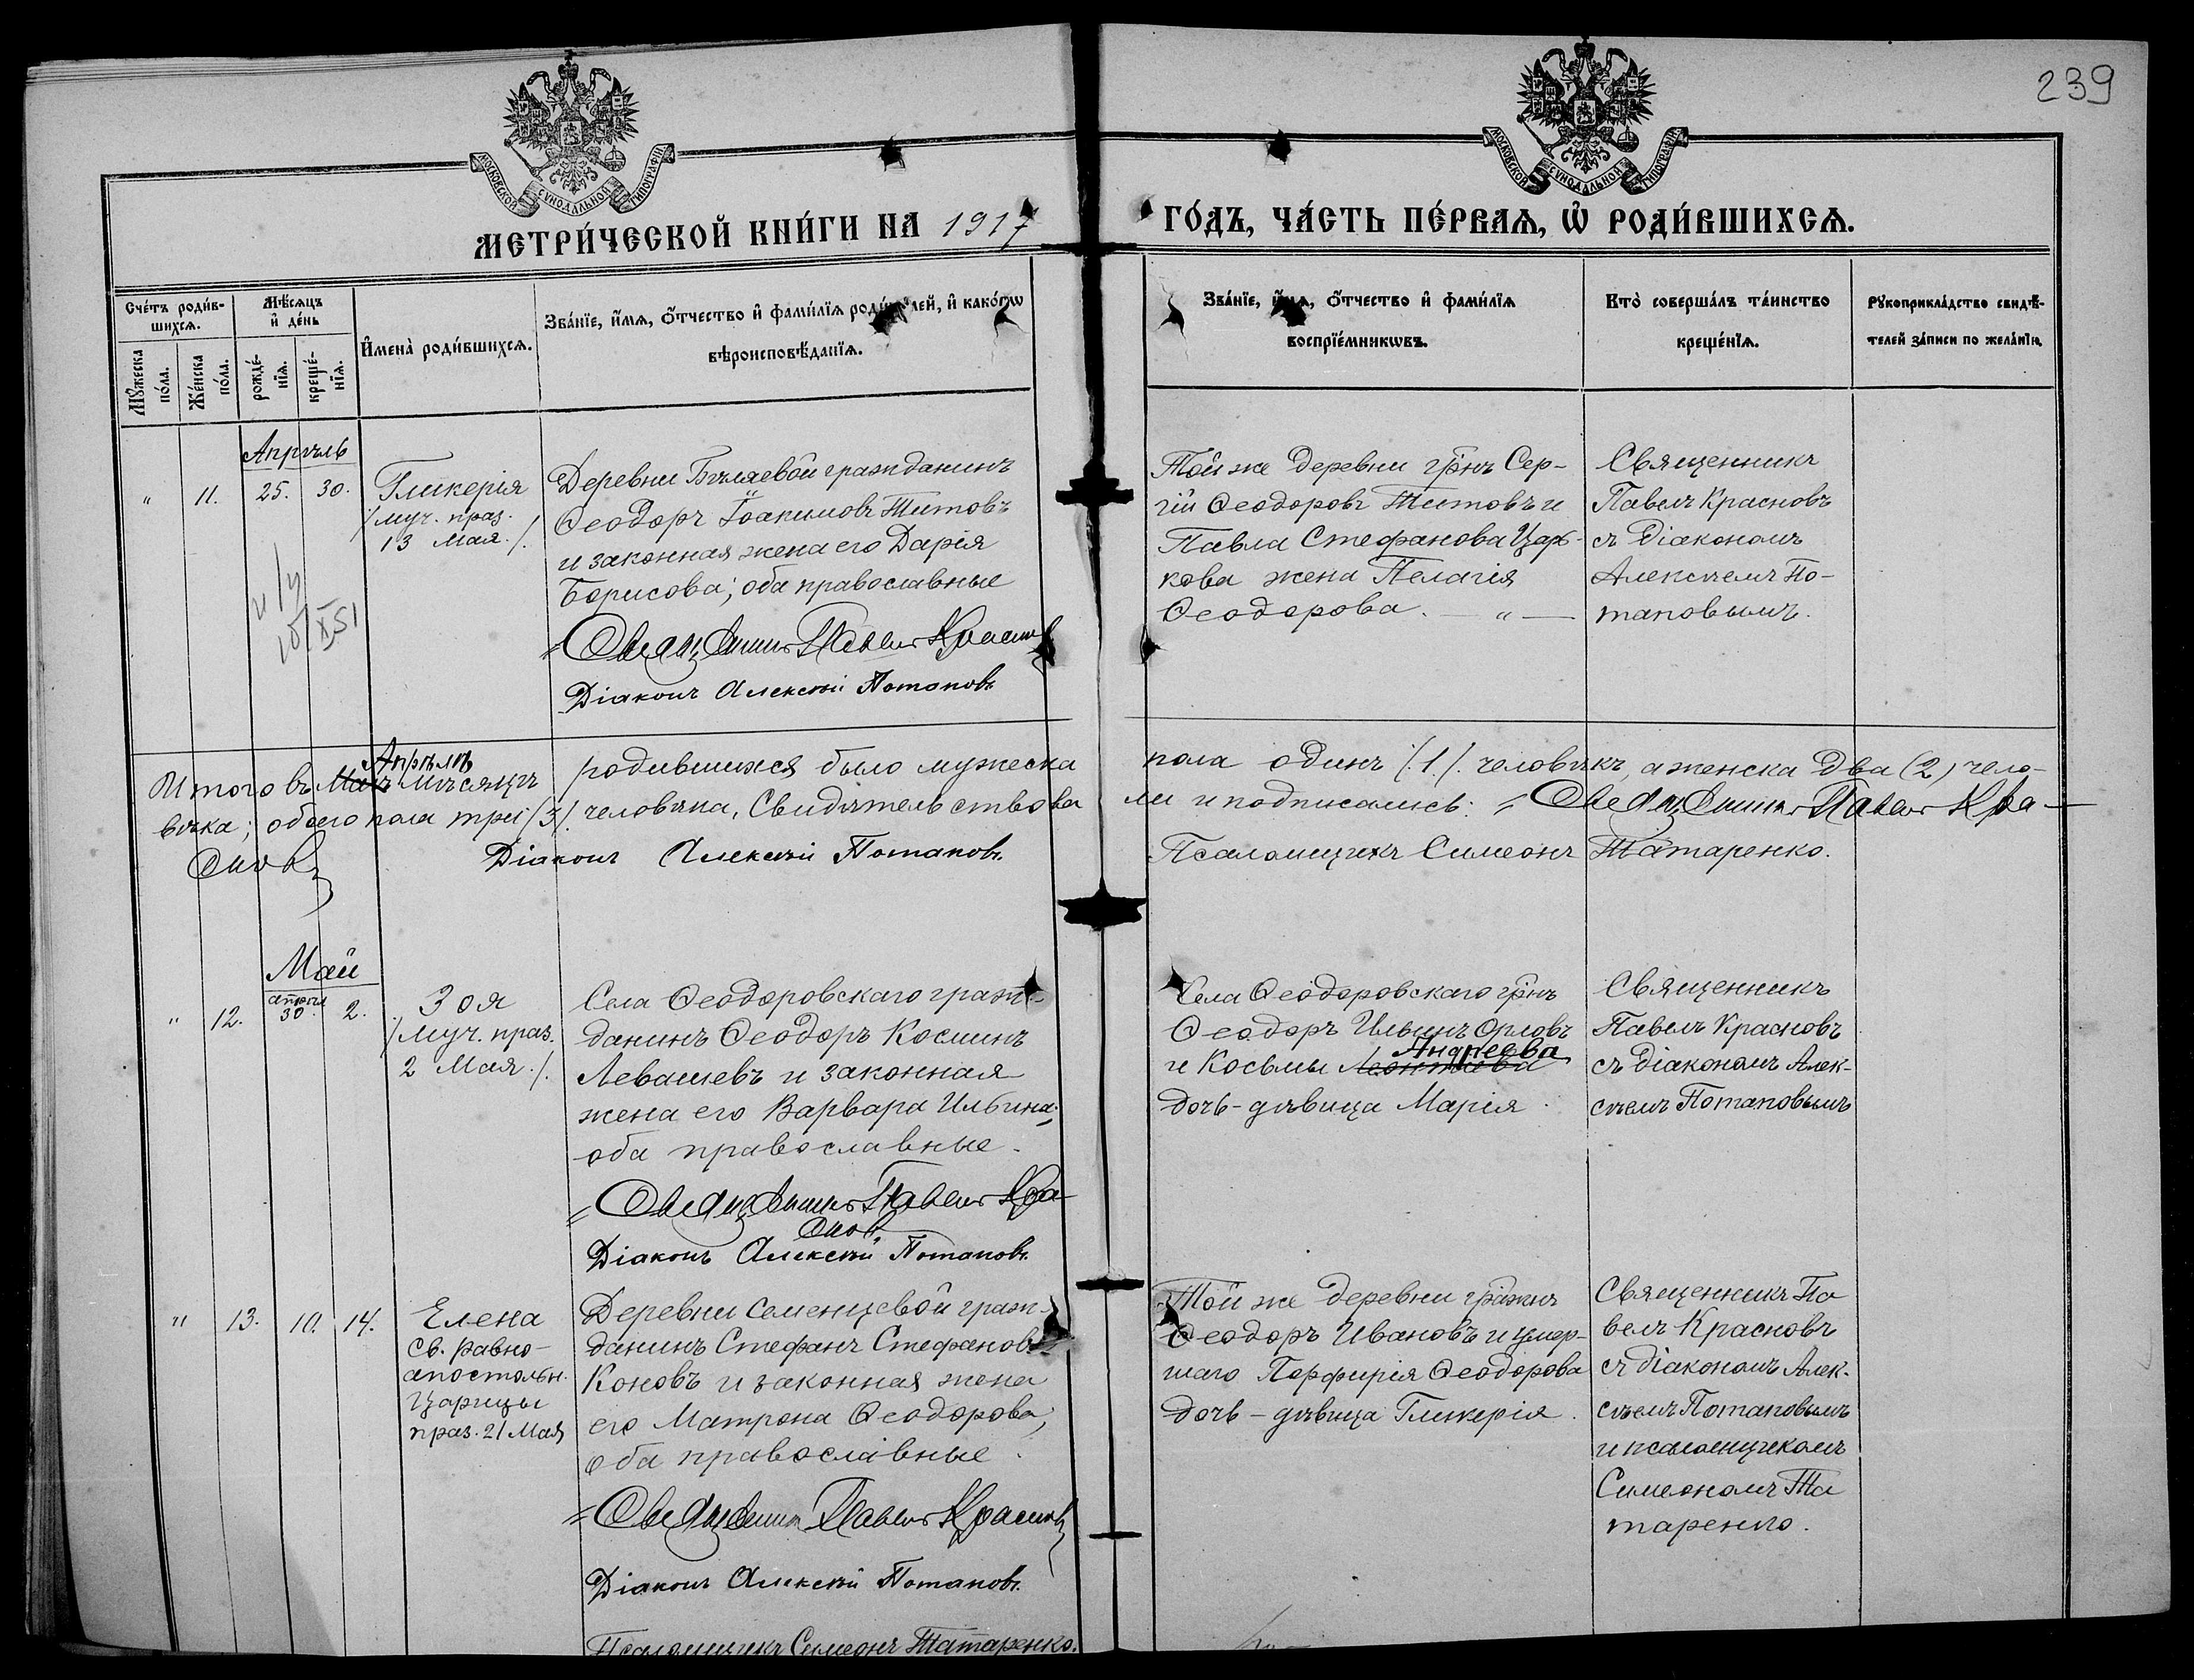 239
МОСКОВСКОЙ СУНОДАЛЬНОЙ ТИПОГРАФІИ
МОСКОВСКОЙ СУНОДАЛЬНОЙ ТИПОГРАФІИ
МЕТРИ́ЧЕСКОЙ КНИ́ГИ НА 1917 ГО́ДЪ, ЧА́СТЬ ПЕ́РВАѦ, Ѡ҆ РОДИ́ВШИХСѦ.
Сче́тъ роди́в-
шихсѧ.
Мꙋ́жеска
по́ла.
Же́нска
по́ла.
Мѣ́сѧцъ
и҆ де́нь
рожде́-
нїѧ.
креще́-
нїѧ.
И҆мена̀ роди́вшихсѧ.
Зва́нїе, и҆́мѧ, ѻ҆́тчество и҆ фами́лїѧ роди́телей, и҆ како́гѡ
вѣроисповѣ́данїѧ.
Зва́нїе, и҆́мѧ, ѻ҆́тчество и҆ фами́лїѧ
воспрїе́мникѡвъ.
Кто̀ соверша́лъ та́инство
креще́нїѧ.
Рꙋкоприкла́дство свидѣ́-
телей за́писи по жела́нїю.
Апрѣль
" 11. 25. 30.
Гликерія
/муч. праз.
13 Мая./.
Деревни Бѣляевой гражданинъ
Ѳеодоръ Іоакимовъ Титовъ
и законная жена его Дарія
Борисова; оба православные
Священникъ Павелъ Красновъ
Діаконъ Алексѣй Потаповъ
Той же деревни гр-нъ Сер-
гій Ѳеодоровъ Титовъ и
Павла Стефанова Царь-
кова жена Пелагія
Ѳеодорова. — " —
Священникъ
Павелъ Красновъ
съ діакономъ
Алексѣемъ По-
таповымъ.
Апрѣлѣ
Итого въ Маѣ мѣсяцѣ родившихся было мужеска пола одинъ /.1./. человѣкъ, а женска два (2) чело-
вѣка; обоего пола три /3/. человѣка, Свидѣтельствова ли и подписались: Священникъ Павелъ Кра-
сновъ Діаконъ Алексѣй Потаповъ. Псаломщикъ Симеонъ Татаренко.
Май
" 12. апрѣля 30. 2.
Зоя
/муч. праз.
2 Мая./.
Села Ѳеодоровскаго граж-
данинъ Ѳеодоръ Косминъ
Левашевъ и законная
жена его Варвара Ильина;
оба православные.
Священникъ Павелъ Кра-
сновъ
Діаконъ Алексѣй Потаповъ.
Села Ѳеодоровскаго гр-нъ
Ѳеодоръ Ильинъ Орловъ
Андреева
и Косьмы Леонтьева
дочь-дѣвица Марія.
Священникъ
Павелъ Красновъ
съ діакономъ Алек-
сѣемъ Потаповымъ
" 13. 10. 14.
Елена
св. равно-
апостольн.
Царицы
праз. 21 Мая
Деревни Семенцевой граж-
данинъ Стефанъ Стефановъ
Коновъ и законная жена
его Матрона Ѳеодорова;
оба православные.
Священникъ Павелъ Красновъ
Діаконъ Алексѣй Потаповъ.
Псаломщикъ Симеонъ Татаренко.
Той же деревни гражнъ
Ѳеодоръ Ивановъ и умер-
шаго Порфирія Ѳеодорова
дочь - дѣвица Гликерія.
Священникъ Па
велъ Красновъ
съ діакономъ Алек-
сѣемъ Потаповымъ
и псаломщикомъ
Симеономъ Та
таренко.